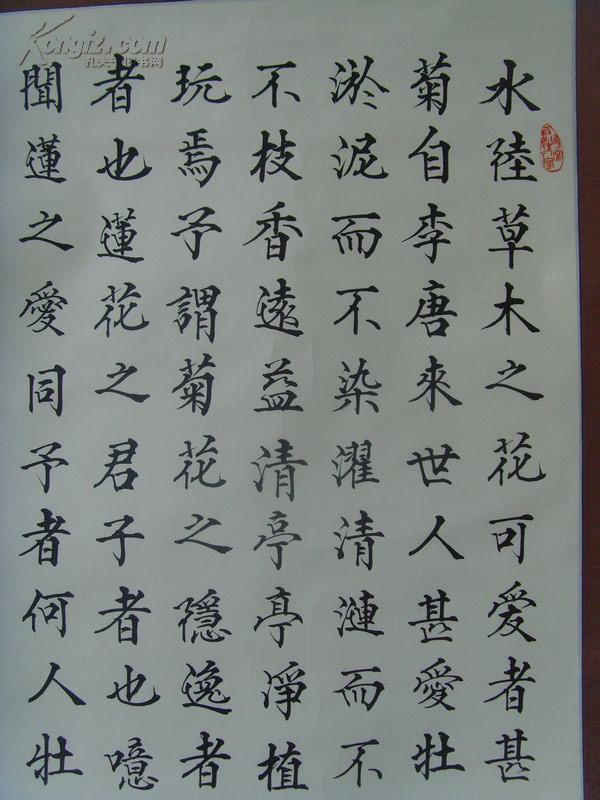 水陸草木之花可爱者甚
菊自李唐来世人甚愛壮
淤泥而不染濯清漣而不
不枝香遠益清亭亭淨植
玩焉予謂菊花之隱逸者
者也蓮花之君子者也噫
聞蓮之愛同予者何人壮
Kongfz.com
孔夫子旧书网